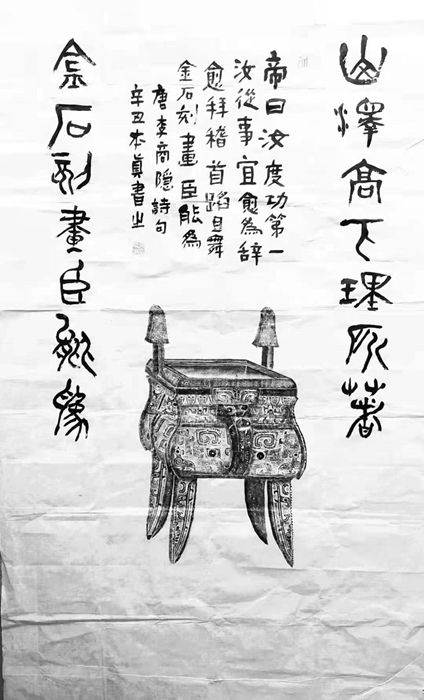 山澤高下理所著
帝曰汝度功第一
汝從事宜愈為辭
愈拜稽首蹈且舞
金石刻畫臣能為
唐李商隱詩句
辛丑本真書之
金石刻畫臣能為